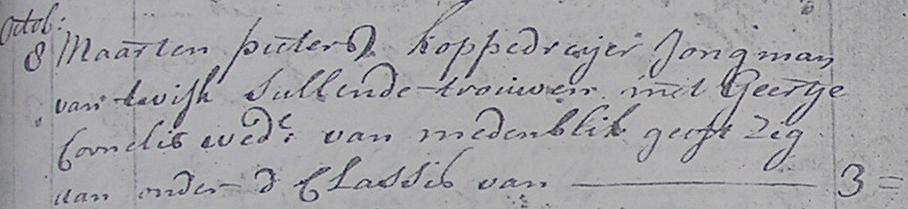 Octob:
8 Maarten pieterse Koppedraijer Jongman
van twisk Sullende trouwen met Geertje
Cornelis wede: van medenblik geeft zig
aan onder d Classis van — 3 =